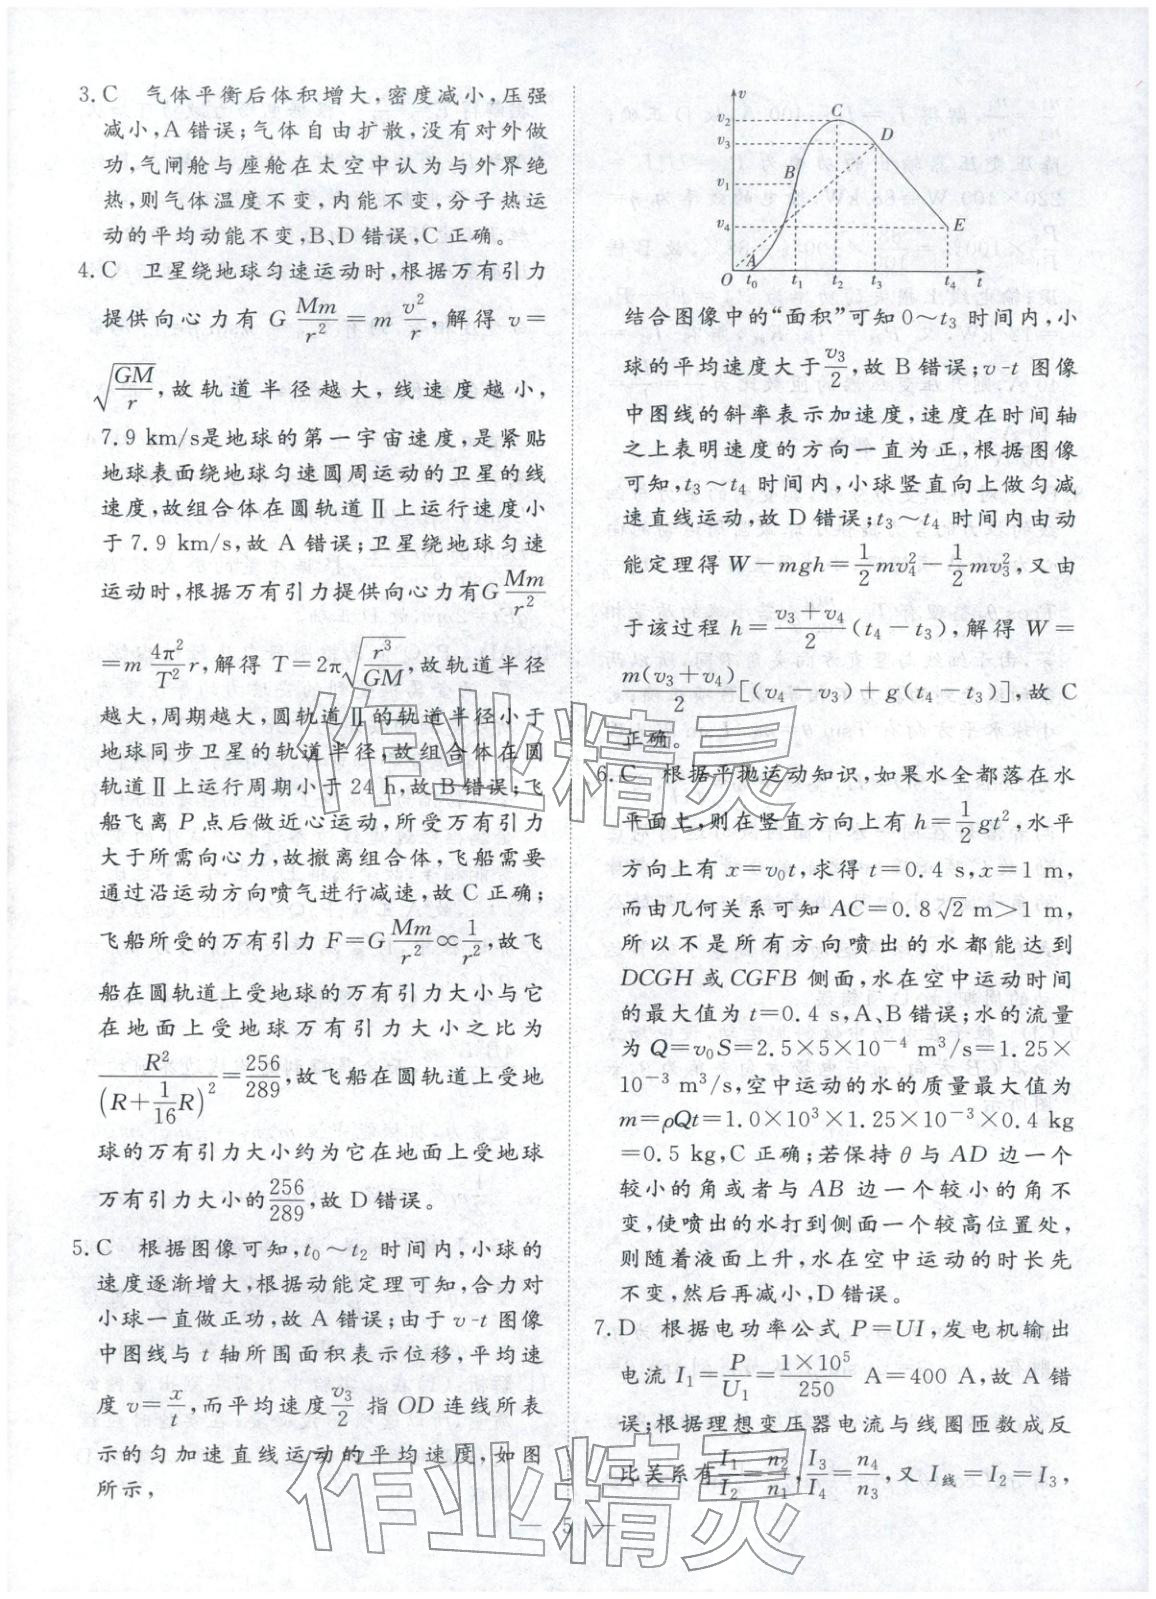 3. C　气体平衡后体积增大,密度减小,压强
减小,A 错误;气体自由扩散,没有对外做
功,气闸舱与座舱在太空中认为与外界绝
热,则气体温度不变,内能不变,分子热运
动的平均动能不变,B、D 错误,C 正确。
4. C　卫星绕地球匀速运动时,根据万有引力
提供向心力有 G\frac{Mm}{r^2}=m\frac{v^2}{r},解得 v=
\sqrt{\frac{GM}{r}},故轨道半径越大,线速度越小,
7.9 km/s是地球的第一宇宙速度,是紧贴
地球表面绕地球匀速圆周运动的卫星的线
速度,故组合体在圆轨道Ⅱ上运行速度小
于 7.9 km/s,故 A 错误;卫星绕地球匀速
运动时,根据万有引力提供向心力有G\frac{Mm}{r^2}
=m\frac{4π^2}{T^2}r,解得 T=2π\sqrt{\frac{r^3}{GM}},故轨道半径
越大,周期越大,圆轨道Ⅱ的轨道半径小于
地球同步卫星的轨道半径,故组合体在圆
轨道Ⅱ上运行周期小于 24 h,故 B 错误;飞
船飞离 P 点后做近心运动,所受万有引力
大于所需向心力,故撤离组合体,飞船需要
通过沿运动方向喷气进行减速,故 C 正确;
飞船所受的万有引力 F=G\frac{Mm}{r^2}∝\frac{1}{r^2},故飞
船在圆轨道上受地球的万有引力大小与它
在地面上受地球万有引力大小之比为
\frac{R^2}{(R+\frac{1}{16}R)^2}=\frac{256}{289},故飞船在圆轨道上受地
球的万有引力大小约为它在地面上受地球
万有引力大小的\frac{256}{289},故 D 错误。
5. C　根据图像可知,t₀～t₂ 时间内,小球的
速度逐渐增大,根据动能定理可知,合力对
小球一直做正功,故 A 错误;由于 v-t 图像
中图线与 t 轴所围面积表示位移,平均速
度 v=\frac{x}{t},而平均速度\frac{v₃}{2} 指 OD 连线所表
示的匀加速直线运动的平均速度,如图
所示,
v
v₂
v₃
v₁
v₄
A
B
C
D
E
O
t₀
t₁
t₂
t₃
t₄
t
结合图像中的“面积”可知 0～t₃ 时间内,小
球的平均速度大于\frac{v₃}{2},故 B 错误;v-t 图像
中图线的斜率表示加速度,速度在时间轴
之上表明速度的方向一直为正,根据图像
可知,t₃～t₄ 时间内,小球竖直向上做匀减
速直线运动,故 D 错误;t₃～t₄ 时间内由动
能定理得 W-mgh=\frac{1}{2}mv₄²-\frac{1}{2}mv₃²,又由
于该过程 h=\frac{v₃+v₄}{2}(t₄-t₃),解得 W=
\frac{m(v₃+v₄)}{2}[(v₄-v₃)+g(t₄-t₃)],故 C
正确。
6. C　根据平抛运动知识,如果水全都落在水
平面上,则在竖直方向上有 h=\frac{1}{2}gt²,水平
方向上有 x=v₀t,求得 t=0.4 s,x=1 m,
而由几何关系可知 AC=0.8\sqrt{2} m>1 m,
所以不是所有方向喷出的水都能达到
DCGH 或 CGFB 侧面,水在空中运动时间
的最大值为 t=0.4 s,A、B 错误;水的流量
为 Q=v₀S=2.5×5×10⁻⁴ m³/s=1.25×
10⁻³ m³/s,空中运动的水的质量最大值为
m=ρQt=1.0×10³×1.25×10⁻³×0.4 kg
=0.5 kg,C 正确;若保持 θ 与 AD 边一个
较小的角或者与 AB 边一个较小的角不
变,使喷出的水打到侧面一个较高位置处,
则随着液面上升,水在空中运动的时长先
不变,然后再减小,D 错误。
7. D　根据电功率公式 P=UI,发电机输出
电流 I₁=\frac{P}{U₁}=\frac{1×10⁵}{250} A=400 A,故 A 错
误;根据理想变压器电流与线圈匝数成反
比关系有\frac{I₁}{I₂}=\frac{n₂}{n₁},\frac{I₃}{I₄}=\frac{n₄}{n₃},又 I线=I₂=I₃,
— 5 —
作业精灵
作业精灵